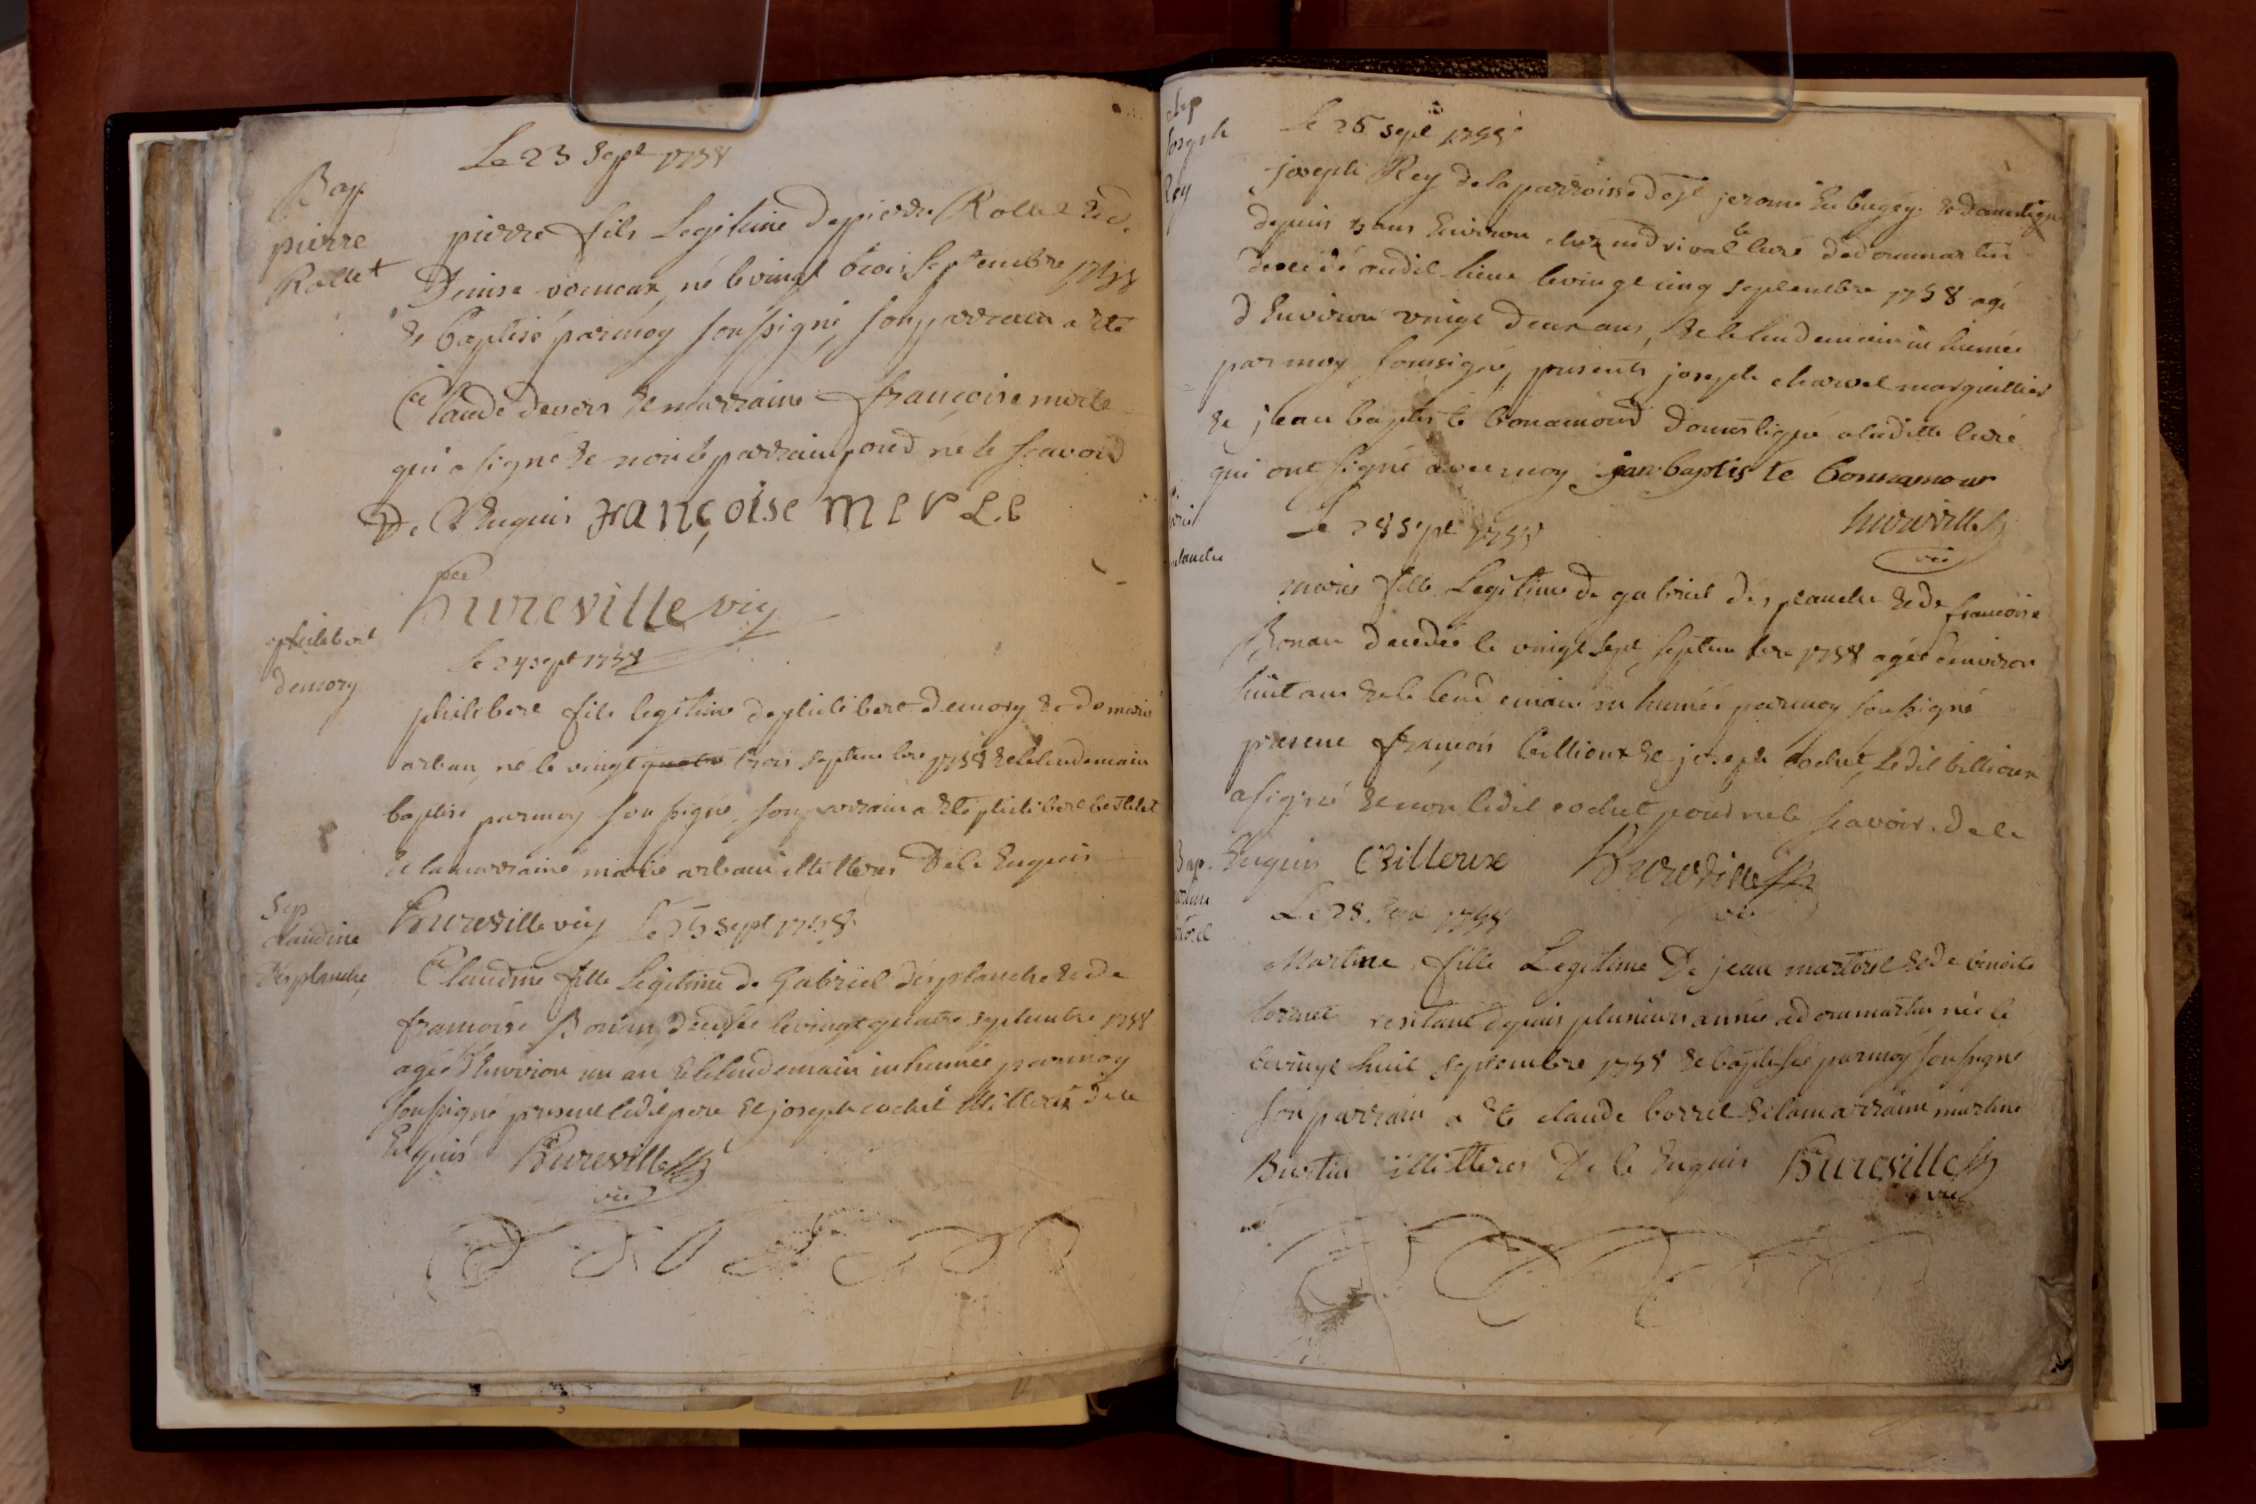 Bap
pierre
Rollet
Le 23 Sept 1758
pierre fils Legitime de pierre Rollet & de
Denise né le vingt trois Septembre 1758
& baptisé par moy soussigné, son parrain a été
Claude Devers & marraine françoise merle
qui a signé & non le parrain pour ne le scavoir
De Ce Enquis françoise merle
Bureville vic
philibert
demory
Le 24 sept 1758
philibert fils legitime de philibert demory & de marie
arban, né le vingt quatre trois septembre 1758 & le lendemain
baptisé par moy soussigné, son parrain a été philibert
& la marraine marie arban illitteres De ce Enquis
Bureville vic
Sep
claudine
Desplanche
Le 25 Sept 1758
Claudine fille Legitime de Gabriel desplanche & de
françoise Bonan, decedée le vingt quatre septembre 1758
agée d'Environ un an & le lendemain inhumée par moy
soussigné present ledit pere & joseph cochet illitteres de ce
Enquis Bureville
vic
Sep
Joseph
Rey
Le 26 sept 1758
joseph Rey de la parroisse de st jerome En bugey & domestique
depuis 3 ans Environ chez mr rival Curé de dommartin
decedé audit lieu le vingt cinq septembre 1758 agé
d'Environ vingt deux ans, & le lendemain inhumé
par moy soussigné, presents joseph charvet marguillier
& jean baptiste bonamour domestique a la ditte Cure
qui ont signé avec moy jean baptiste bonnamour
bureville
vic
Le 28 Sept 1758
marie fille Legitime de gabriel desplanche & de françoise
Bonan decedée le vingt sept septembre 1758 agée d'environ
huit ans & le lendemain inhumée par moy soussigné
present françois billioux & joseph cochet, ledit billioux
a signé & non ledit cochet pour ne le scavoir de ce
Enquis Billioux Bureville
vic
Bap.
Le 28 Sept 1758
Martine fille Legitime De jean martorel & de benoite
resitant depuis plusieurs année a dommartin née le
le vingt huit septembre 1758 & baptisée par moy soussigné
son parrain a été claude borrel & la marraine martine
illitteres De Ce Enquis Bureville
vic